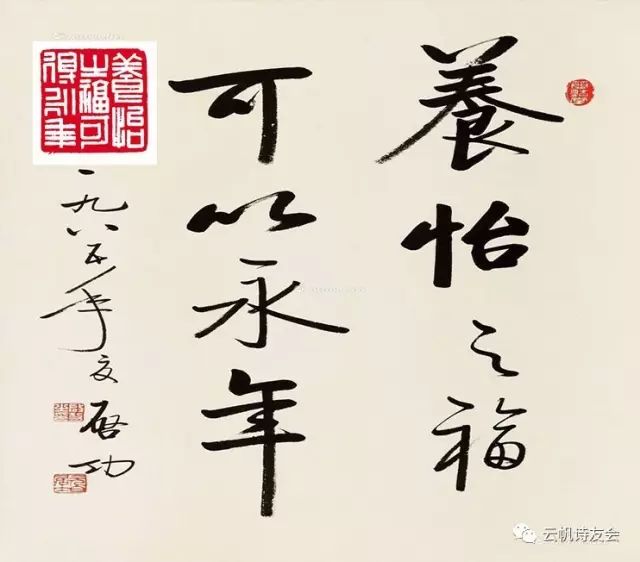 養怡之福
可以永年
一九八五年夏 启功
養怡
之福可
得永年
云帆诗友会